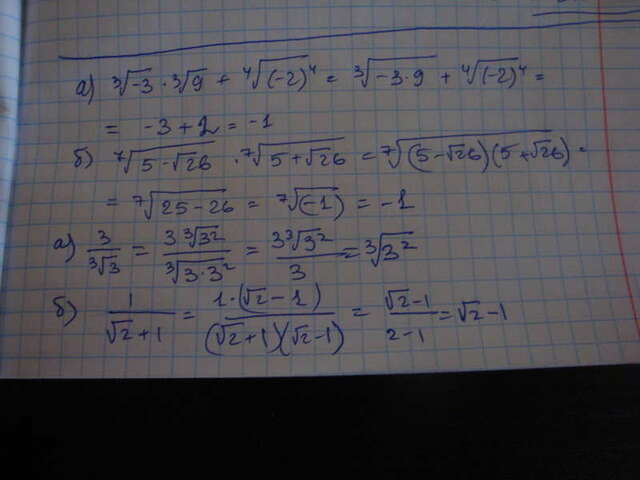 а) ∛-3 · ∛9 + ∜(-2)⁴ = ∛-3·9 + ∜(-2)⁴ =
= -3 + 2 = -1
б) ⁷√5-√26 · ⁷√5+√26 = ⁷√(5-√26)(5+√26) =
= ⁷√25-26 = ⁷√(-1) = -1
а) 3/∛3 = 3∛3²/∛3·3² = 3∛3²/3 = ∛3²
б) 1/√2+1 = 1·(√2-1)/(√2+1)(√2-1) = √2-1/2-1 = √2-1